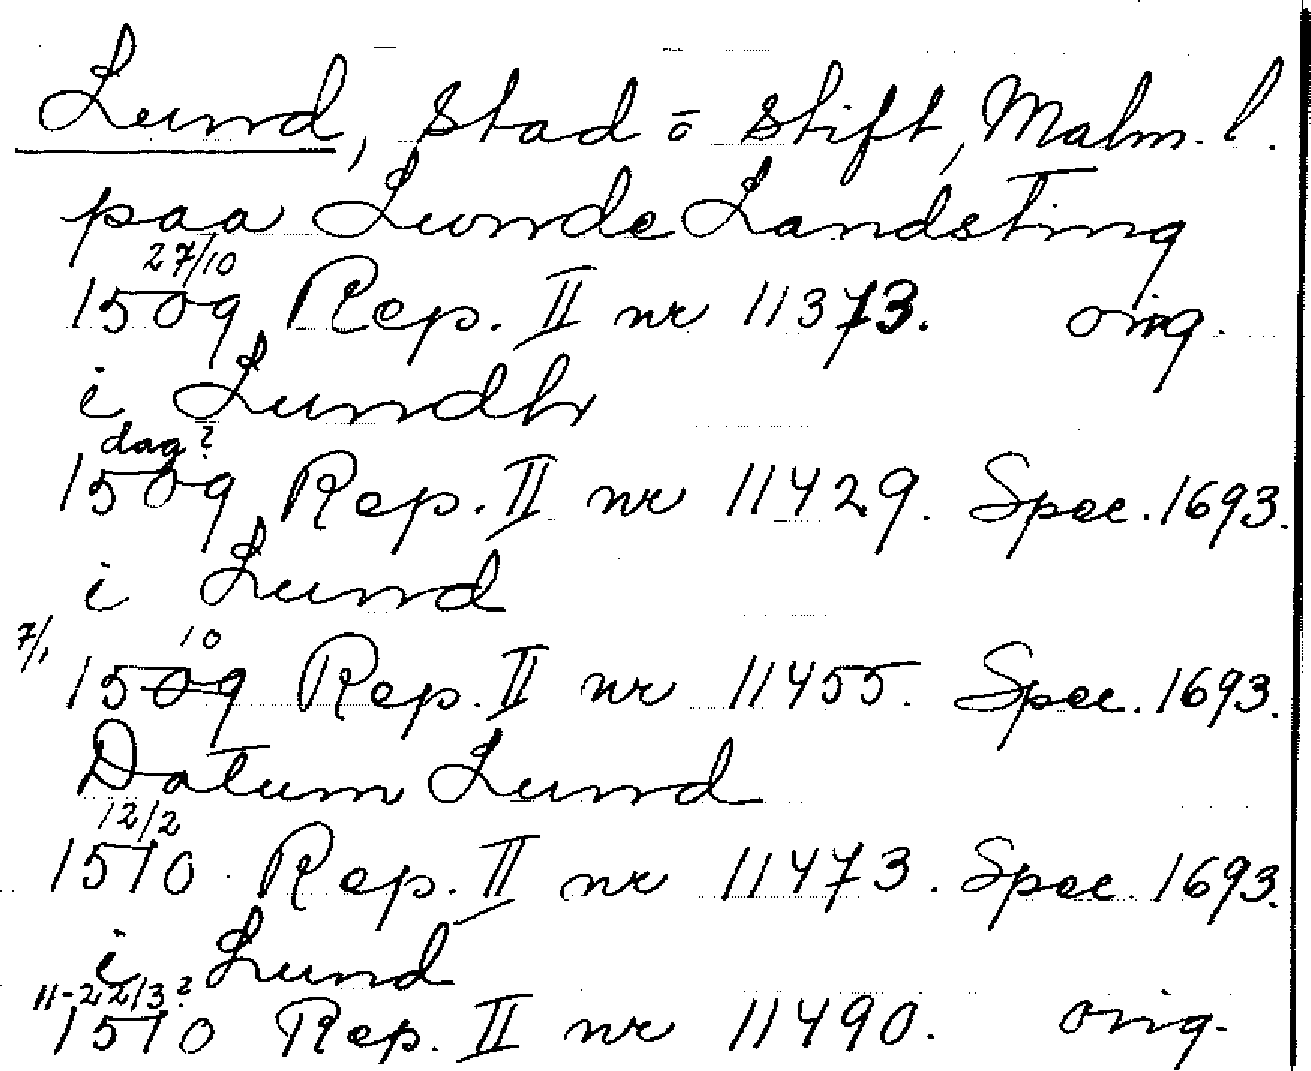 Lund, stad o stift, Malm. l.
paa Lunde Landsting
27/10
1509 Rep. II nr 11373. orig.
i Lundh
dag?
1509 Rep. II nr 11429. Spec. 1693.
i Lund
7/1 10
1509 Rep. II nr 11455. Spec. 1693.
Datum Lund
12/2
1510 Rep. II nr 11473. Spec. 1693.
i Lund
11-22/3?
1510 Rep. II nr 11490. orig.